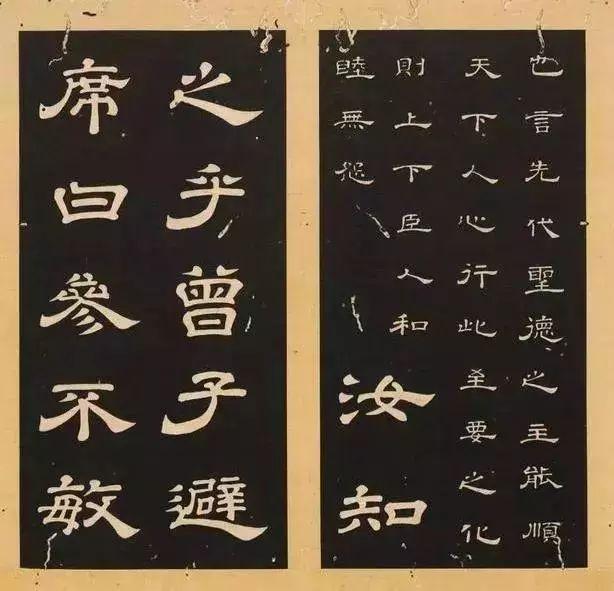 也言先代聖德之主能順
天下人心行此至要之化
則上下臣人和
睦無怨汝知
之乎曾子避
席曰參不敏